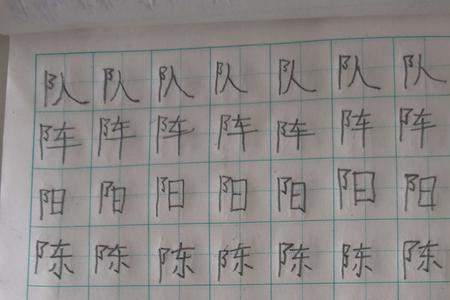 队 队 队 队 队 队 队
阵 阵 阵 阵 阵 阵 阵
阳 阳 阳 阳 阳 阳 阳
陈 陈 陈 陈 陈 陈 陈